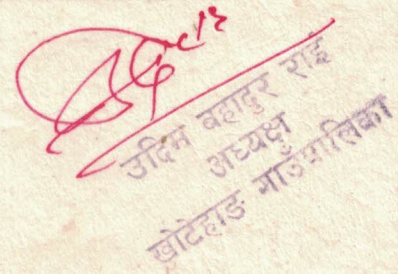 उदिम बहादुर राई
अध्यक्ष
खोटेहाङ गाउँपालिका